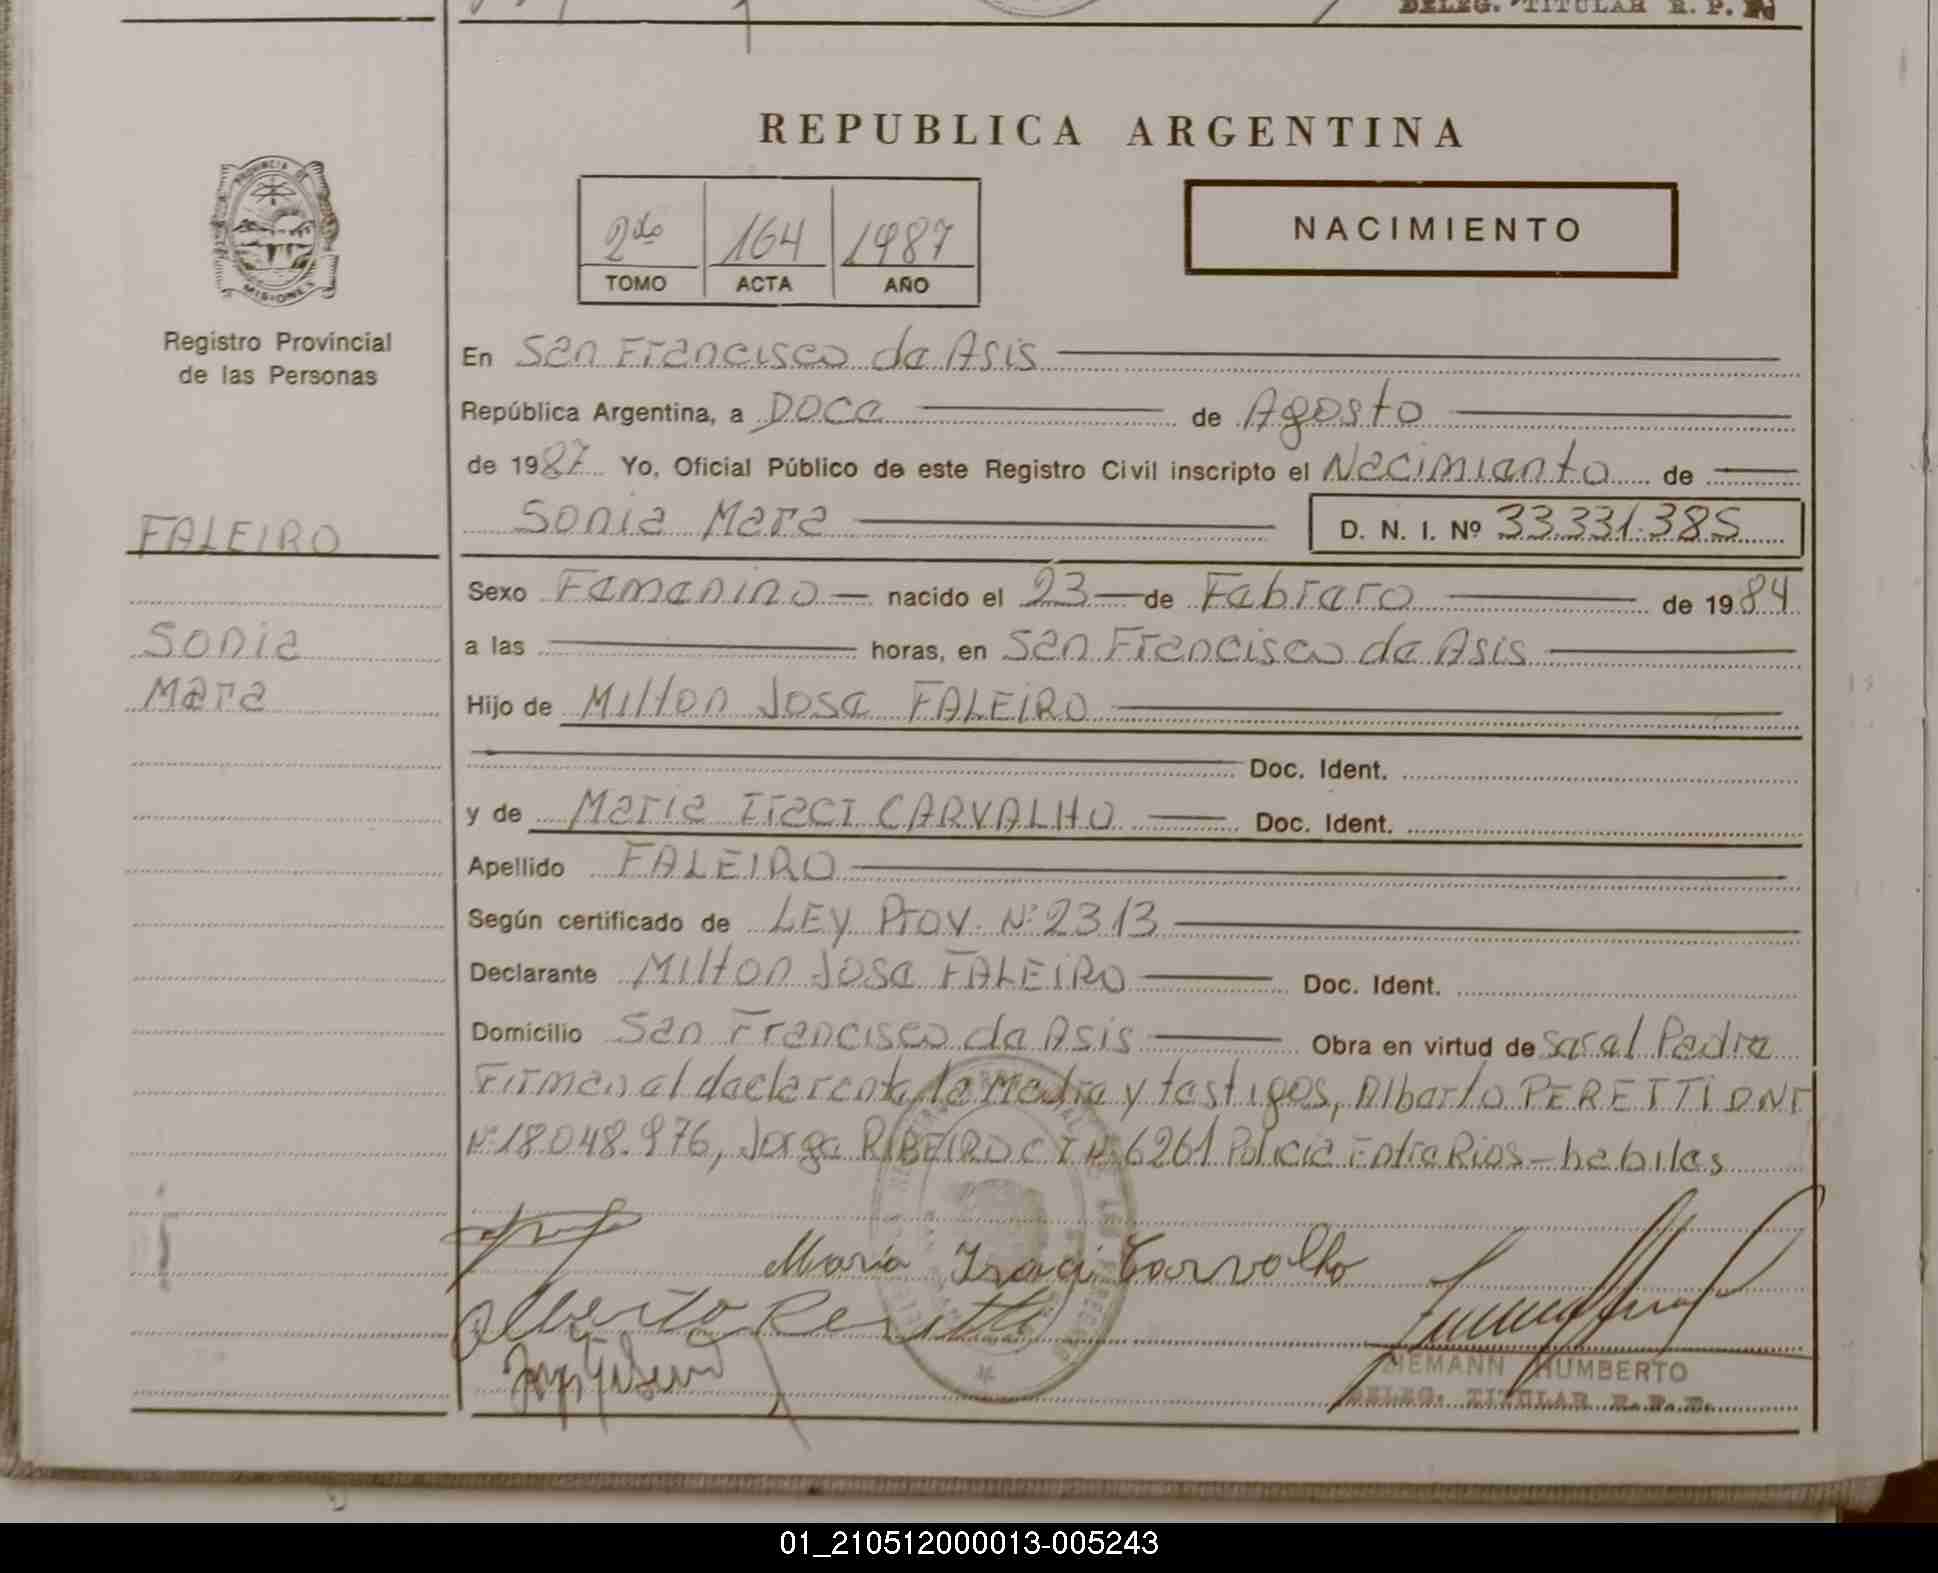 DELEG. TITULAR R. P.
REPUBLICA ARGENTINA
PROVINCIA DE
MISIONES
Registro Provincial
de las Personas
2do 164 1987
TOMO ACTA AÑO
NACIMIENTO
En San Francisco de Asis
República Argentina, a Doce de Agosto
de 1987 Yo, Oficial Público de este Registro Civil inscripto el Nacimiento de
Sonia Mara D. N. I. Nº 33.331.385
FALEIRO
Sonia
Mara
Sexo Femenino nacido el 23 de Febrero de 1984
a las horas, en San Francisco de Asis
Hijo de Milton Jose FALEIRO
Doc. Ident.
y de Maria Iraci CARVALHO Doc. Ident.
Apellido FALEIRO
Según certificado de LEY Prov. Nº 2313
Declarante Milton Jose FALEIRO Doc. Ident.
Domicilio San Francisco de Asis Obra en virtud de ser el Padre
Firman el declarante, la Madre y testigos, Alberto PERETTI DNI
Nº 18.048.976, Jorge RIBEIRO C I Nº 6261 Policia Entre Rios - habiles
María Iraci Carvalho
Alberto Peretti
HUMBERTO
DELEG. TITULAR R. P. P.
01_210512000013-005243